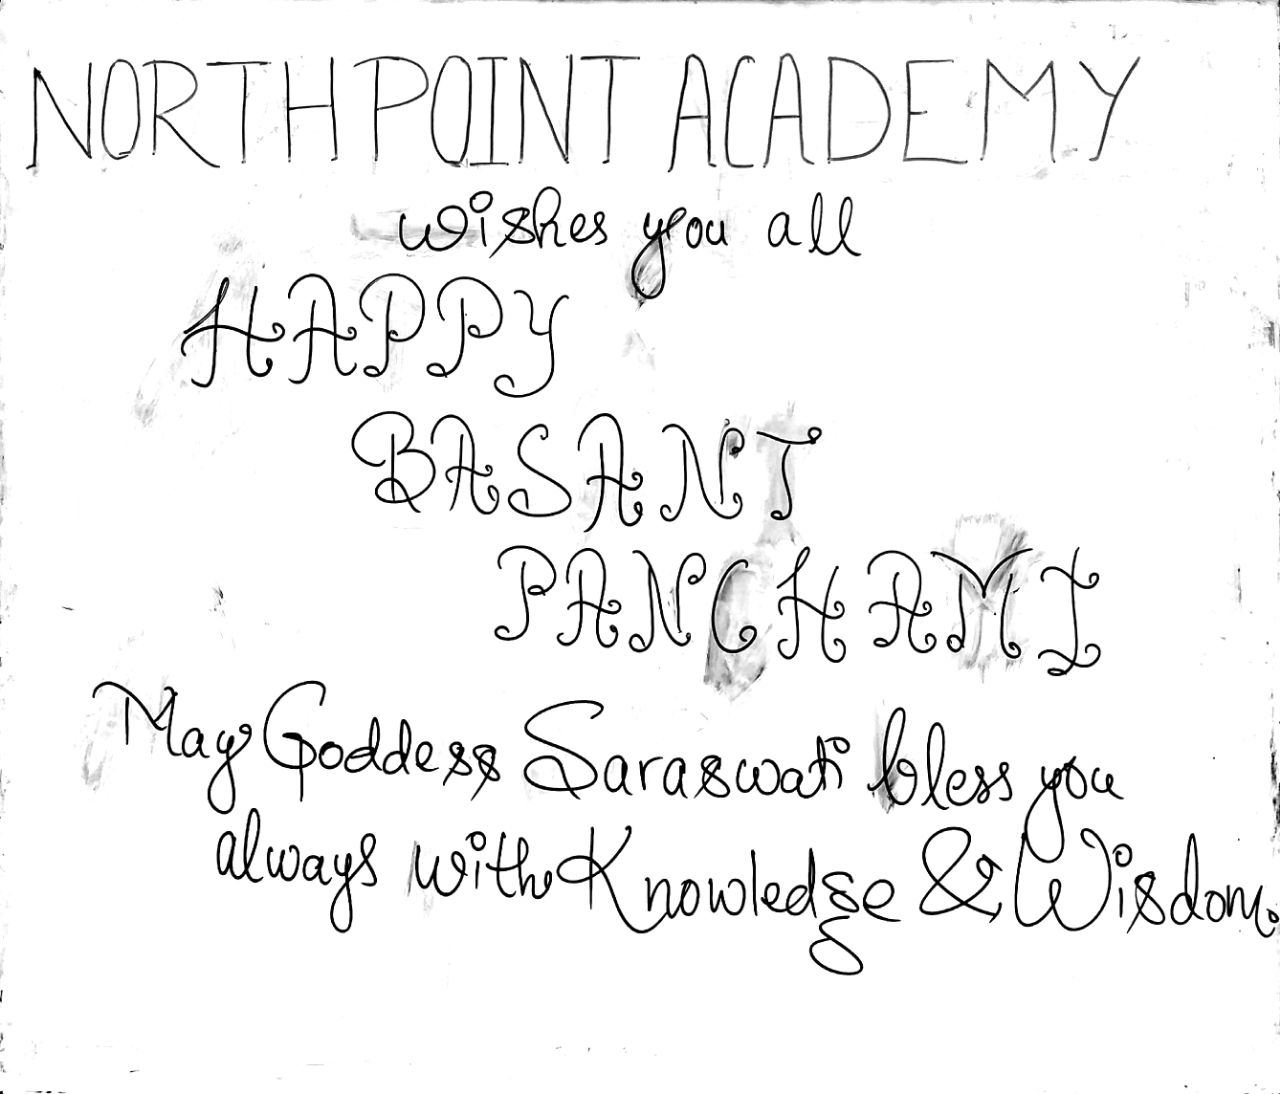 NORTHPOINT ACADEMY
wishes you all
HAPPY
BASANT
PANCHAMI
May Goddess Saraswati bless you
always with Knowledge & Wisdom.